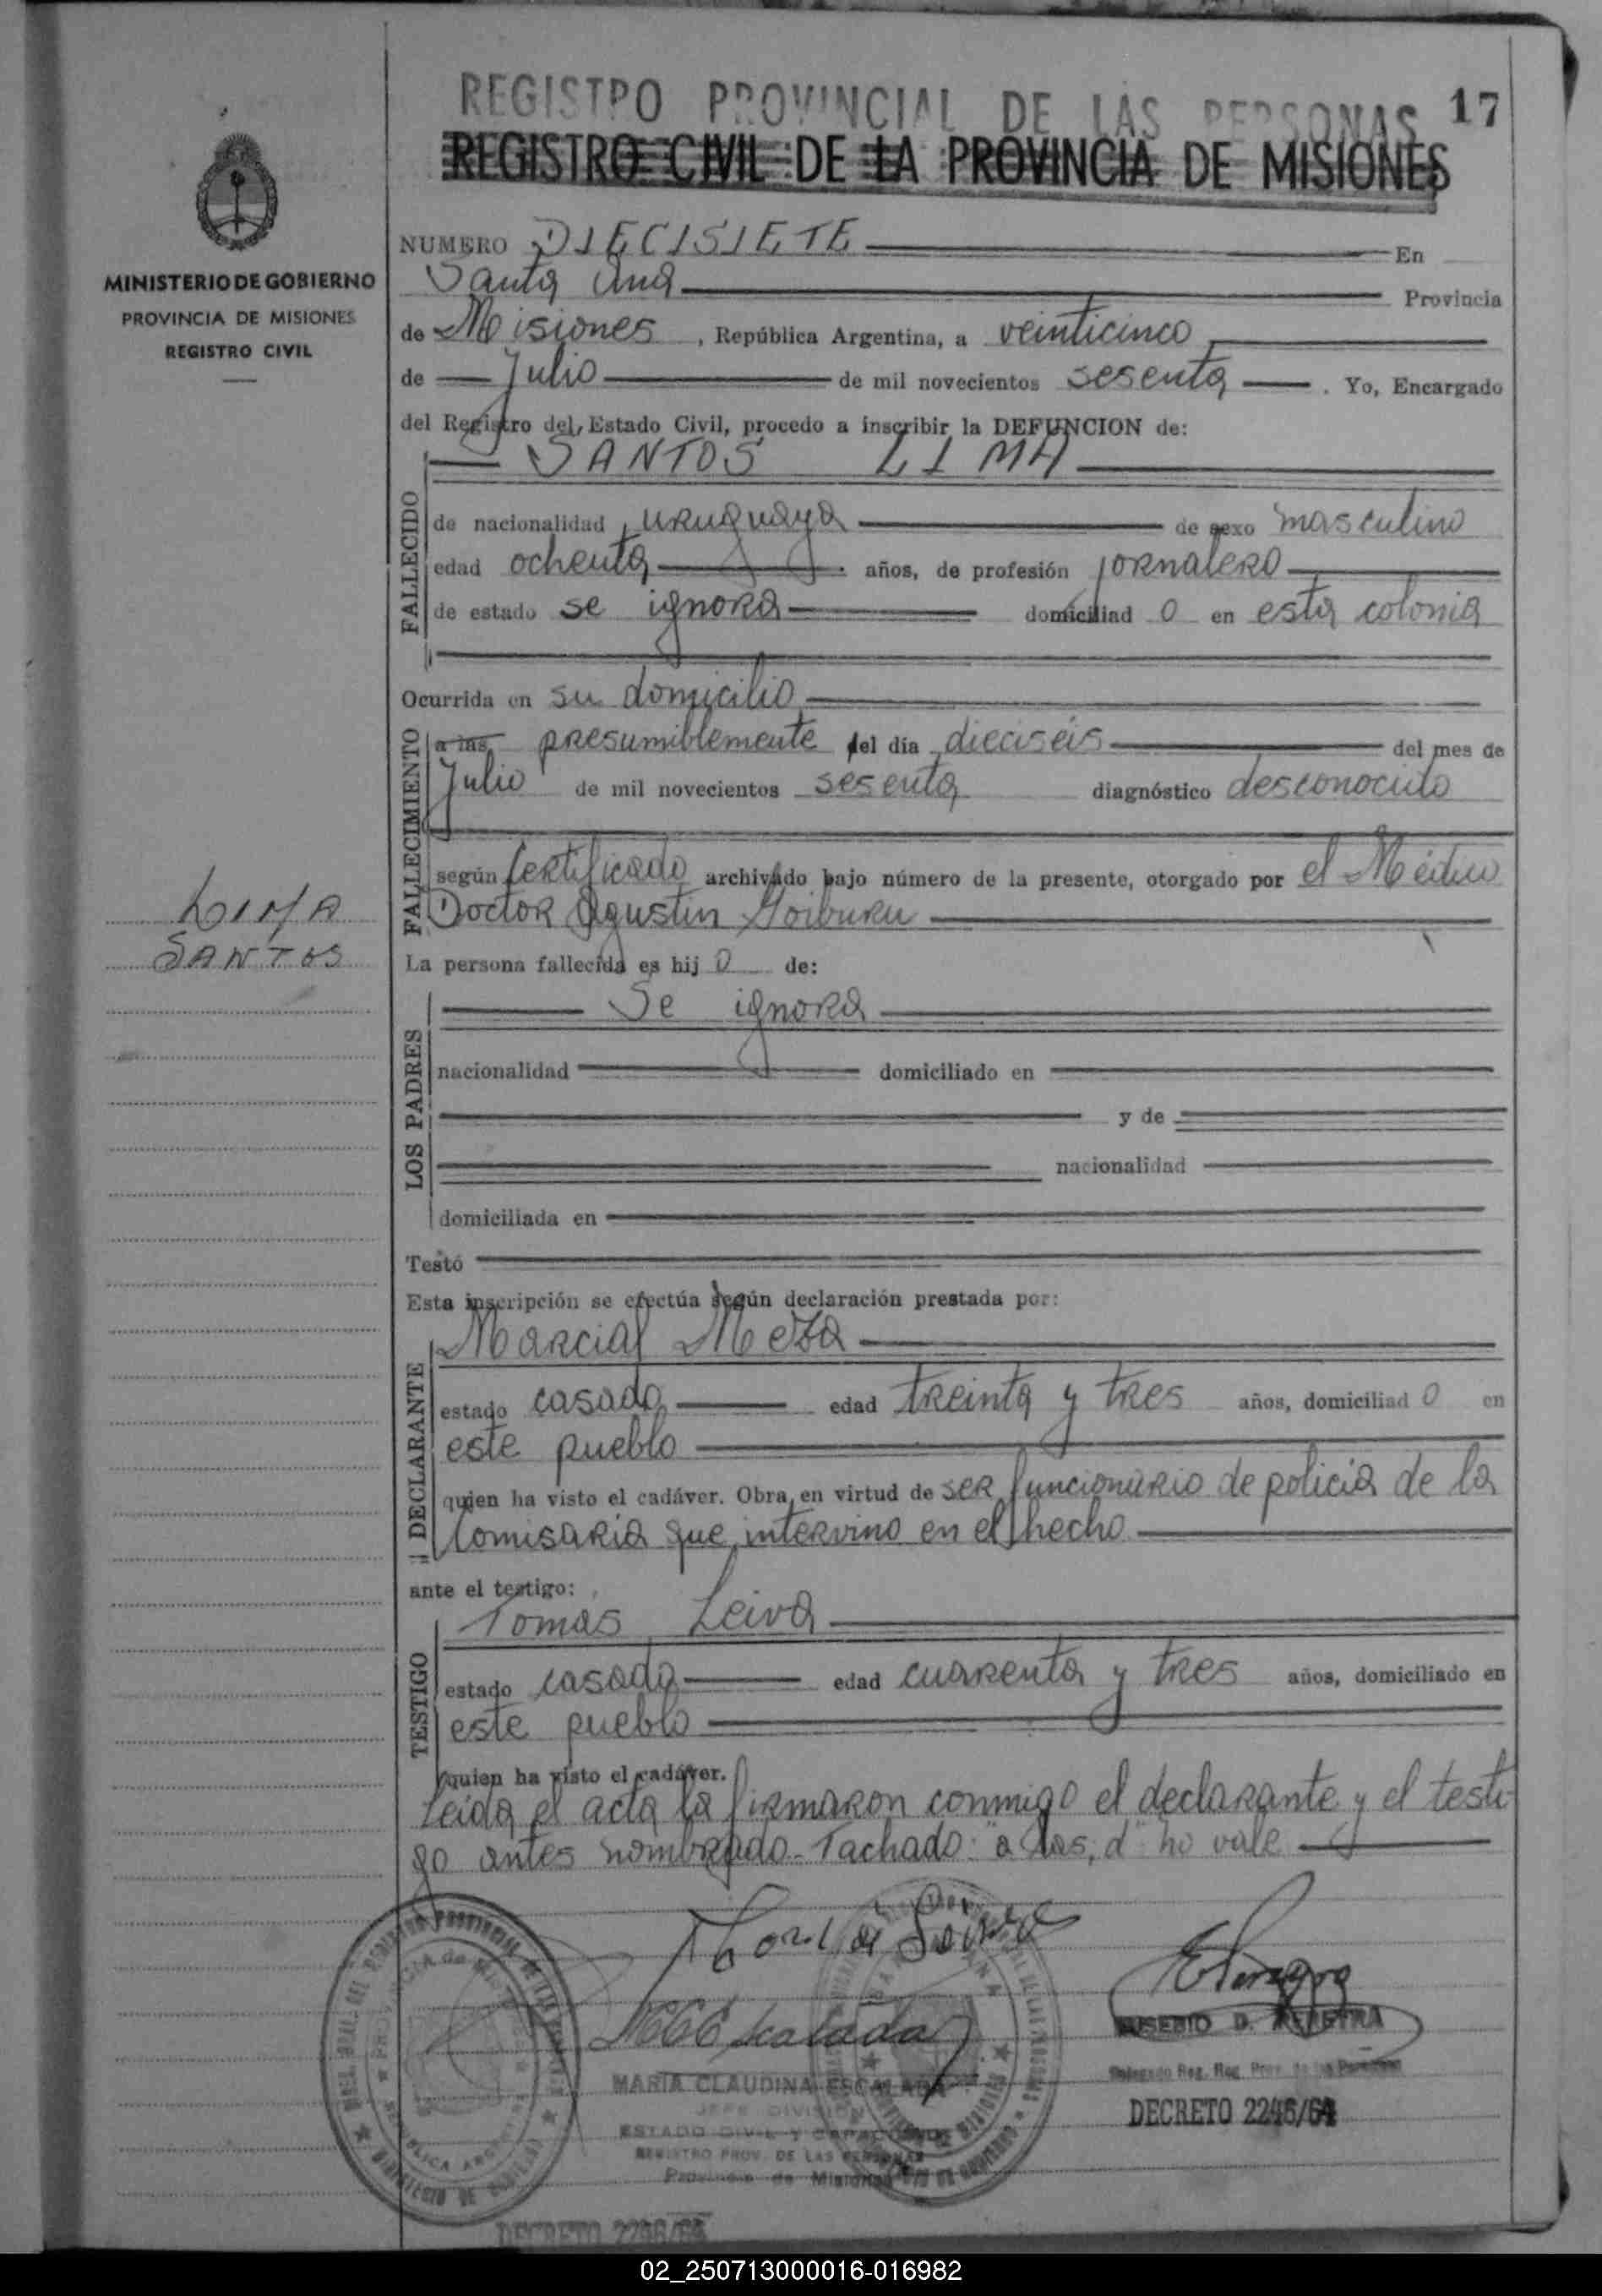 REGISTRO PROVINCIAL DE LAS PERSONAS 17
REGISTRO CIVIL DE LA PROVINCIA DE MISIONES
MINISTERIO DE GOBIERNO
PROVINCIA DE MISIONES
REGISTRO CIVIL
NUMERO DIECISIETE En
Santa Ana Provincia
de Misiones, República Argentina, a veinticinco
de Julio de mil novecientos sesenta. Yo, Encargado
del Registro del Estado Civil, procedo a inscribir la DEFUNCION de:
SANTOS LIMA
FALLECIDO
de nacionalidad uruguaya de sexo masculino
edad ochenta años, de profesión jornalero
de estado se ignora domiciliad o en esta colonia
Ocurrida en su domicilio
FALLECIMIENTO
a las presumiblemente del día dieciséis del mes de
Julio de mil novecientos sesenta diagnóstico desconocido
según Certificado archivado bajo número de la presente, otorgado por el Médico
Doctor Agustin Goiburu
LIMA
SANTOS
La persona fallecida es hij o de:
LOS PADRES
Se ignora
nacionalidad domiciliado en
y de
nacionalidad
domiciliada en
Testó
Esta inscripción se efectúa según declaración prestada por:
DECLARANTE
Marcial Meza
estado casado edad treinta y tres años, domiciliad o en
este pueblo
quien ha visto el cadáver. Obra en virtud de ser funcionario de policía de la
Comisaría que intervino en el hecho
ante el testigo:
TESTIGO
Tomas Leiva
estado casado edad cuarenta y tres años, domiciliado en
este pueblo
quien ha visto el cadáver.
Leída el acta la firmaron conmigo el declarante y el testi-
go antes nombrado. Tachado: "a las, d" no vale
MARIA CLAUDINA ESCALADA
JEFE DIVISION
ESTADO CIVIL Y CAPACIDAD
REGISTRO PROV. DE LAS PERSONAS
Provincia de Misiones
EUSEBIO D. PEREYRA
Delegado Reg. Prov. de las Personas
DECRETO 2246/64
DECRETO 2246/64
02_250713000016-016982